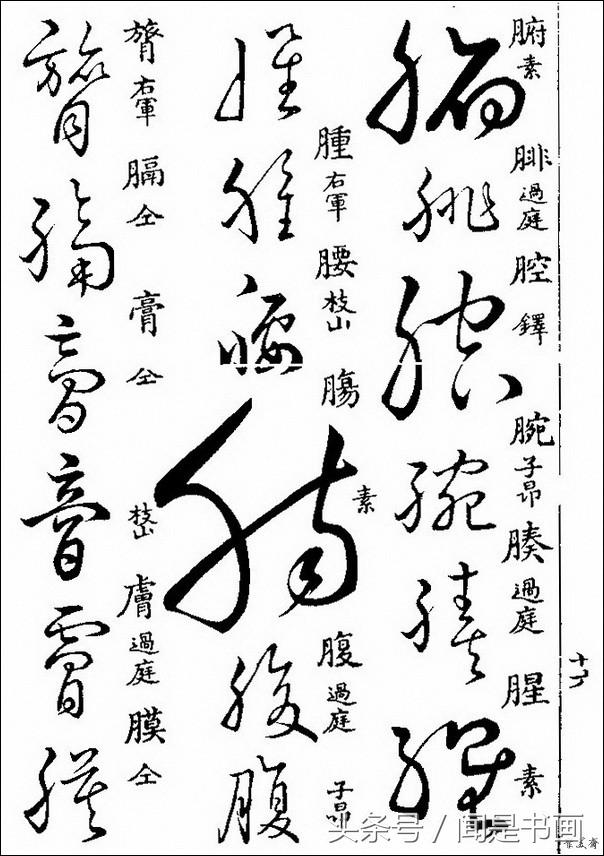 腑 素
腓 過庭
腔 鐸
腕 子昂
腠 過庭
腥 素
腫 右軍
腰 枝山
腸 素
腹 過庭
子昂
膂 右軍
膈 仝
膏 仝
枝山
膚 過庭
膜 仝
头条号 / 闻是书画